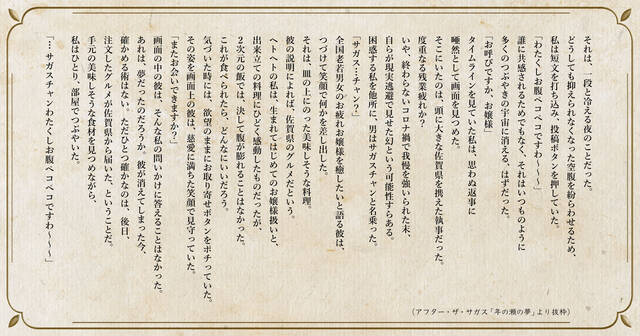 それは、一段と冷える夜のことだった。
どうしても抑えられなくなった空腹を紛らわせるため、
私は短文を打ち込み、投稿ボタンを押していた。
「わたくしお腹ペコペコですわ～～～」
誰に共感されるためでもなく、それはいつものように
多くのつぶやきの宇宙に消える、はずだった。
「お呼びですか、お嬢様」
タイムラインを見ていた私は、思わぬ返事に
唖然として画面を見つめた。
そこにいたのは、頭に大きな佐賀県を携えた執事だった。
度重なる残業疲れか？
いや、終わらないコロナ禍で我慢を強いられた末、
自らが現実逃避で見せた幻という可能性すらある。
困惑する私を他所に、男はサガスチャンと名乗った。
「サガス…チャン？」
全国老若男女のお疲れお嬢様を癒したいと語る彼は、
つづけて笑顔で何かを差し出した。
それは、皿の上にのった美味しそうな料理。
彼の説明によれば、佐賀県のグルメだという。
ヘトヘトの私は、生まれてはじめてのお嬢様扱いと、
出来立ての料理にひどく感動したものだったが、
２次元の飯では、決して腹が膨れることはなかった。
これが食べられたら、どんなにいいだろう。
気づいた時には、欲望のままにお取り寄せボタンをポチっていた。
その姿を画面上の彼は、慈愛に満ちた笑顔で見守っていた。
「またお会いできますか？」
画面の中の彼は、そんな私の問いかけに答えることはなかった。
あれは、夢だったのだろうか。彼が消えてしまった今、
確かめる術はない。ただひとつ確かなのは、後日、
注文したグルメが佐賀県から届いた、ということだ。
手元の美味しそうな食材を見つめながら、
私はひとり、部屋でつぶやいた。
「…サガスチャンわたくしお腹ペコペコですわ～～～」
（アフター・ザ・サガス「年の瀬の夢」より抜粋）